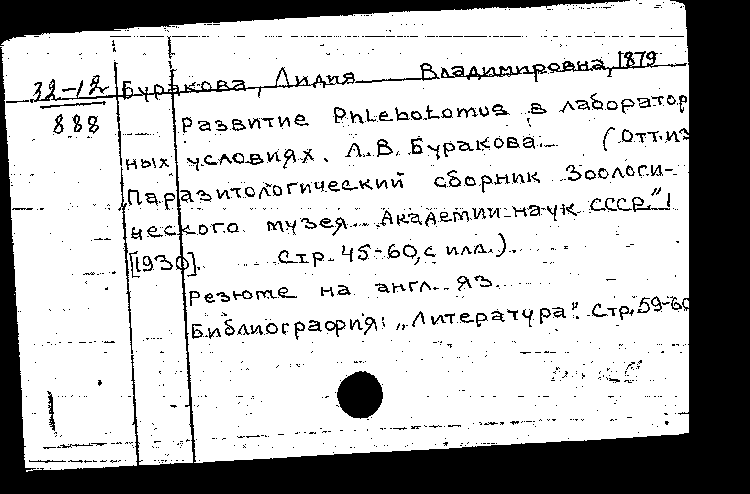 32-12
888
Буракова, Лидия Владимировна, 1879
Развитие Phlebotomus в лаборатор
ных условиях. Л.В. Буракова. (Отт.из
„Паразитологический сборник Зоологи-
ческого музея Академии наук СССР." I
[1930]. Стр. 45-60, с илл.).
Резюме на англ. яз.
Библиография: „Литература". Стр. 59-60